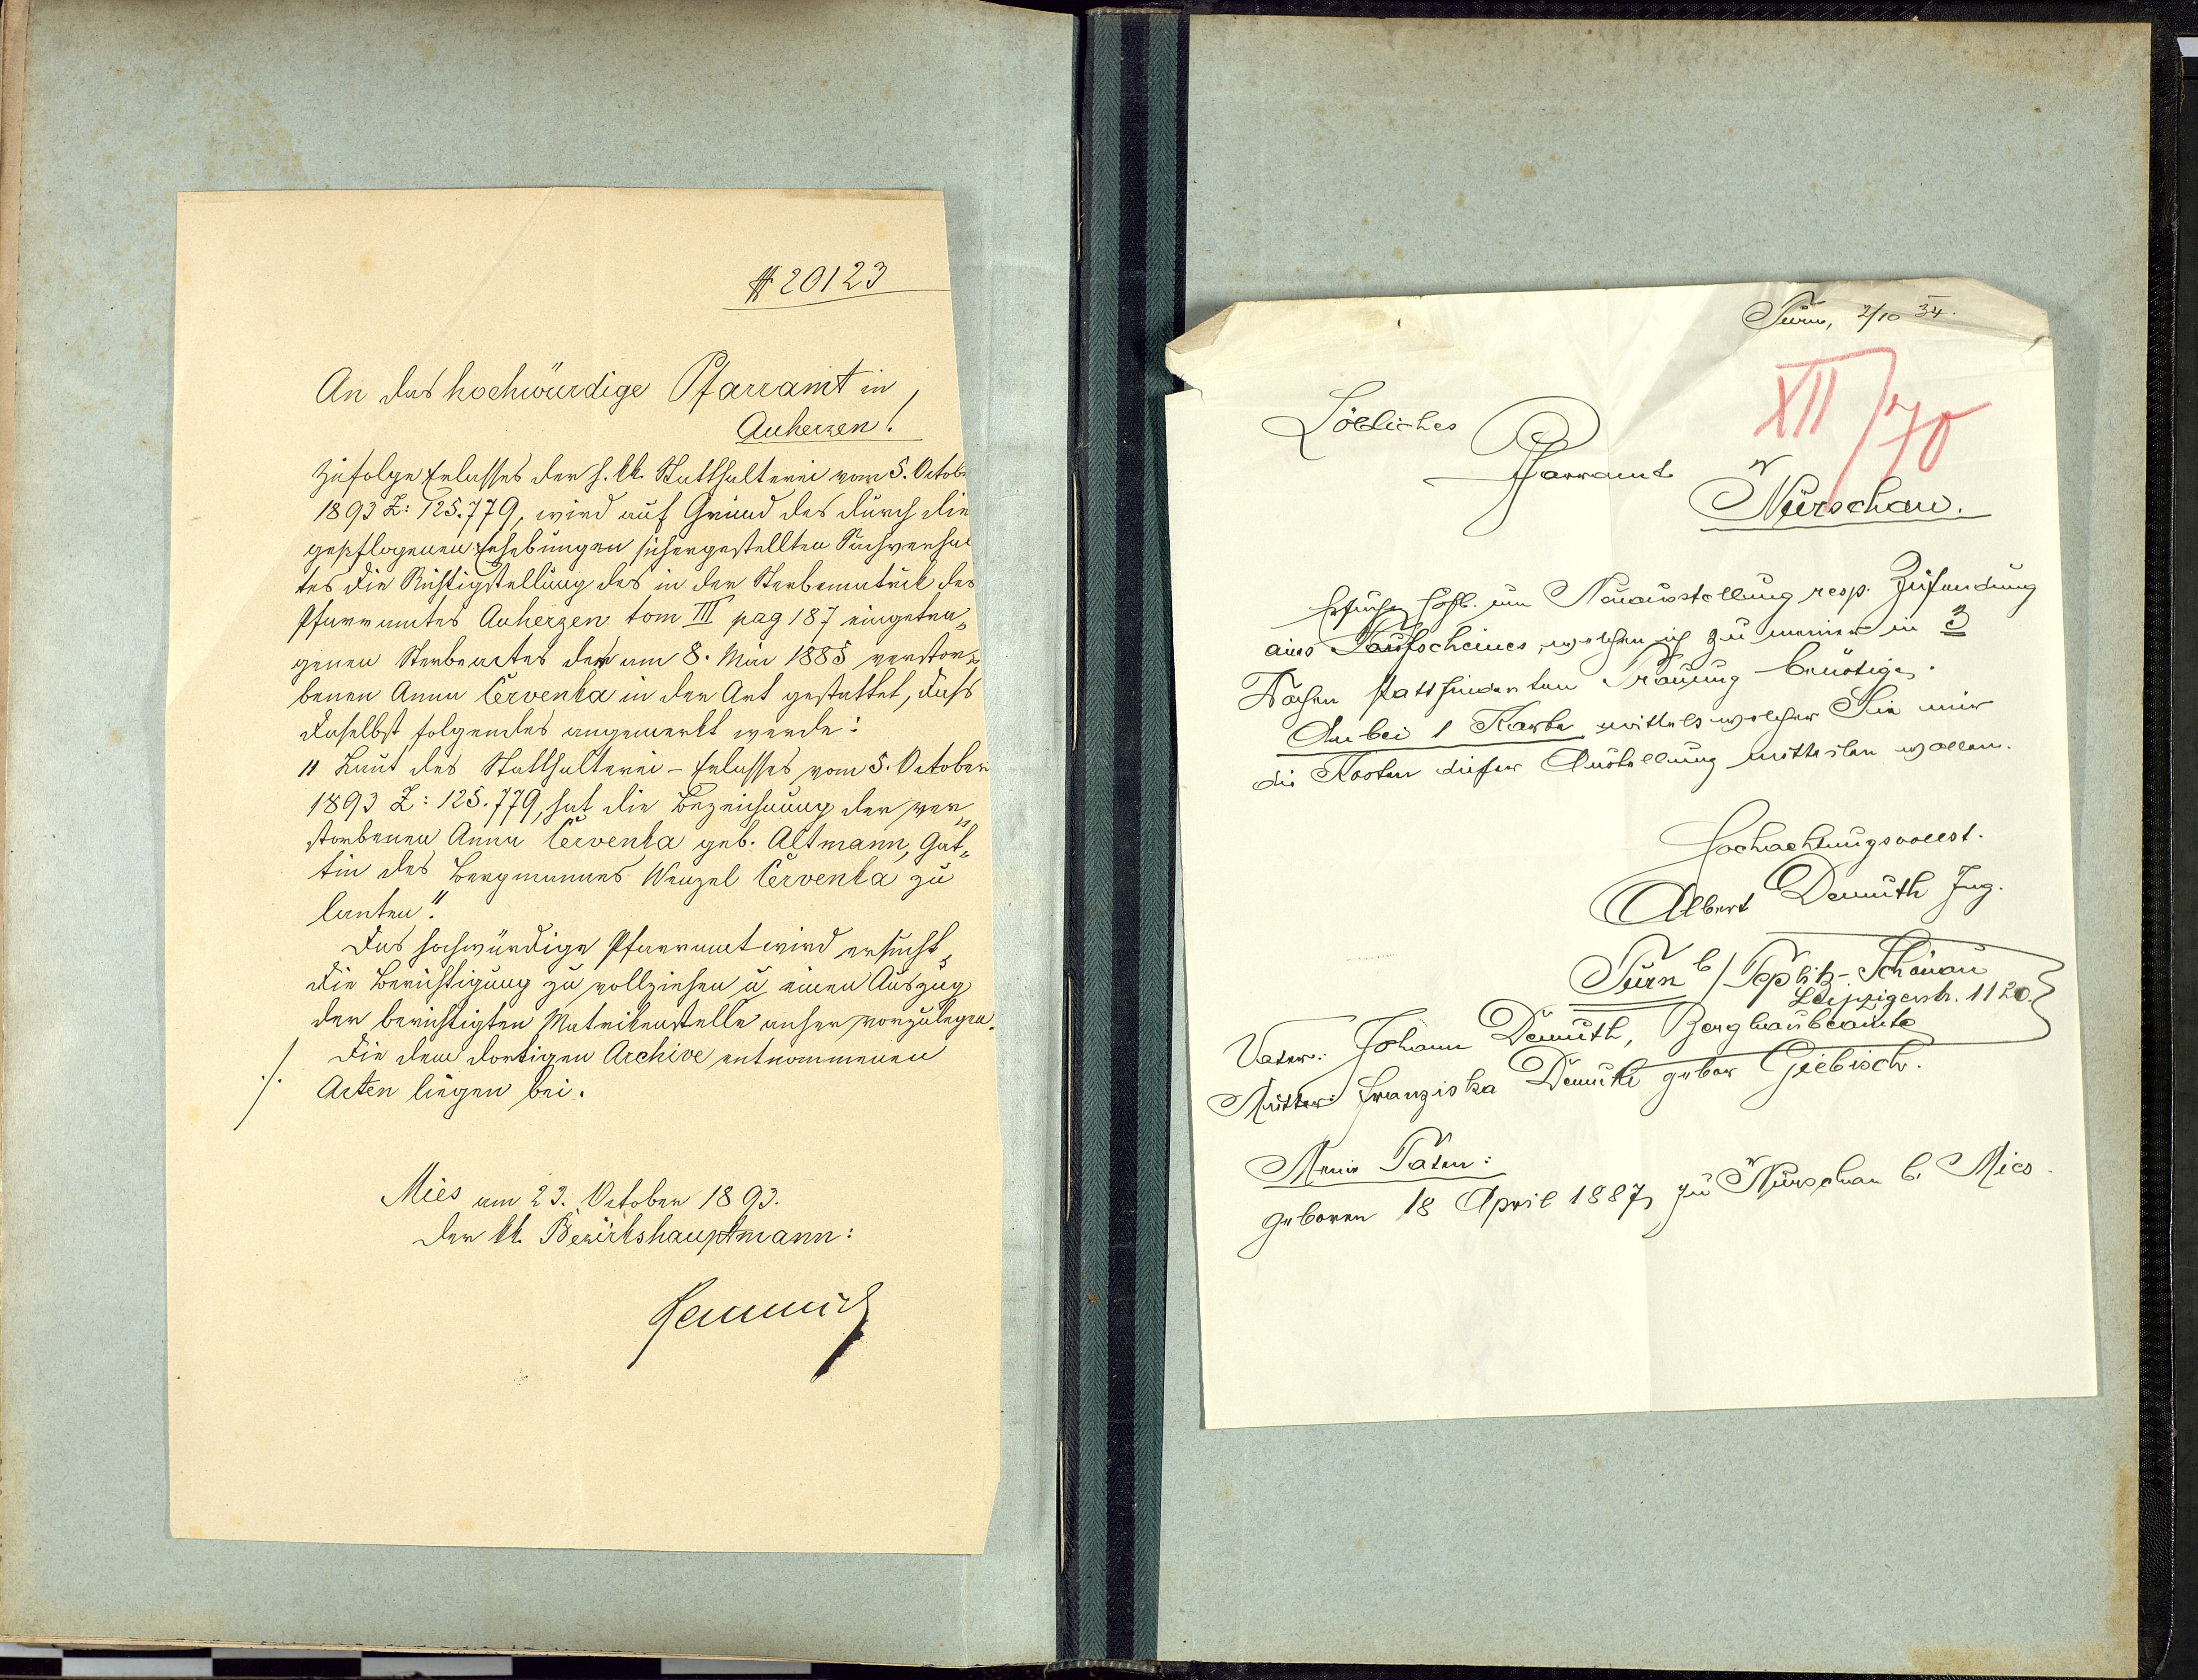 # 20123
An das hochwürdige Pfarramt in
Auherzen!
Zufolge Erlasses der h. kk. Statthalterei vom 5. Octob
1893 Z: 125.779, wird auf Grund des durch die
gepflogenen Erhebungen sichergestellten Sachverhal
tes die Richtigstellung des in der Sterbematrik des
Pfarramtes Auherzen tom III pag 187 eingetra„
genen Sterbeactes der am 8. Mai 1885 verstor„
benen Anna Červenka in der Art gestattet, daß
daselbst folgendes angemerkt werde:
"Laut des Statthalterei-Erlasses vom 5. October
1893 Z: 125.779, hat die Bezeichnung der ver„
storbenen Anna Červenka geb. Altmann, Gat„
tin des Bergmannes Wenzel Červenka zu
lauten".
Das hochwürdige Pfarramt wird ersucht,
die Berichtigung zu vollziehen u. einen Auszug
der berichtigten Matrikenstelle anher vorzulegen.
./. Die dem dortigen Archive entnommenen
Acten liegen bei.
Mies am 23. October 1893.
Der kk. Bezirkshauptmann:
Turn, 2/10 34.
XII/70
Löbliches
Pfarramt
Nürschau.
Ersuche höfl. um Neuausstellung resp. Zusendung
eines Taufscheines, welchen ich zu meiner in 3
Wochen stattfindenden Trauung benötige.
Anbei 1 Karte mittels welcher Sie mir
die Kosten dieser Ausstellung mitteilen wollen.
Hochachtungsvollst.
Albert Demuth Ing.
Turn b/Teplitz-Schönau
Leipzigerstr. 1120.
Vater: Johann Demuth, Bergbaubeamte
Mutter: Franziska Demuth gebor Giebisch.
Meine Daten:
geboren 18 April 1887, zu Nürschau b. Mies.